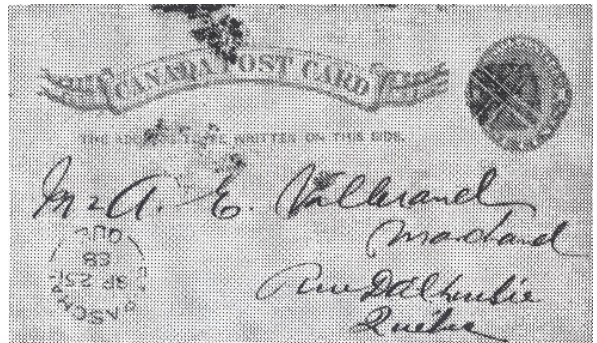 CANADA POST CARD
THE ADDRESS TO BE WRITTEN ON THIS SIDE.
Mr A. E. Vallerand
Marchand
Rue Dalhousie
Québec
QUE
SP 25